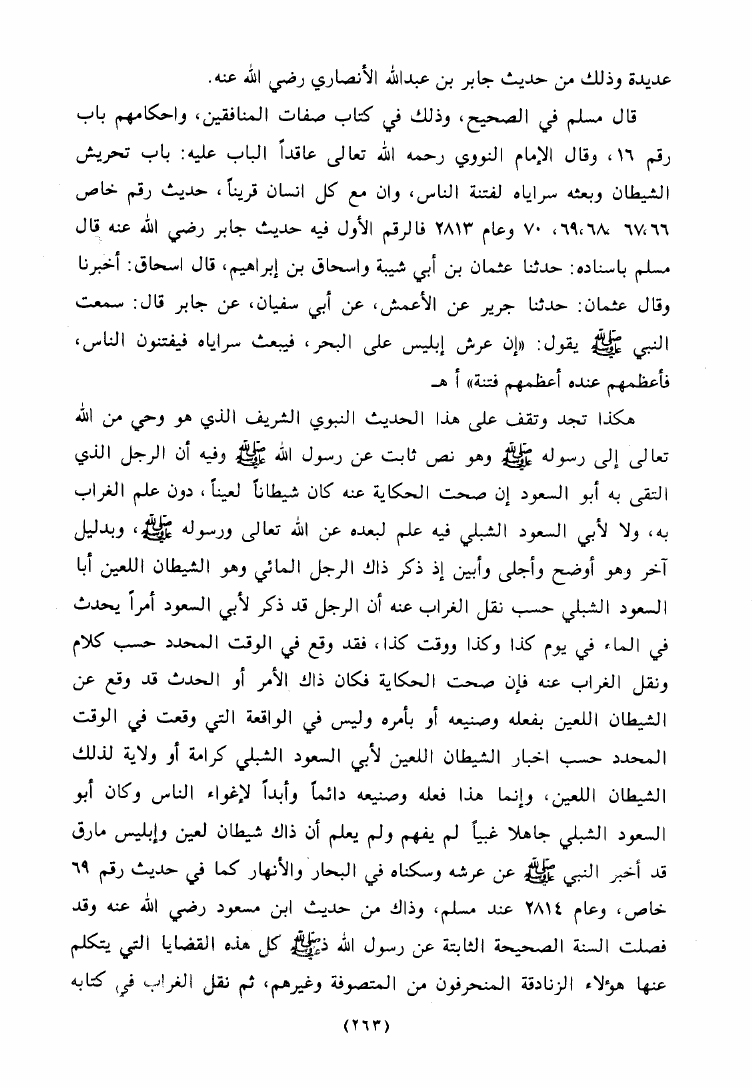 عديدة وذلك من حديث جابر بن عبدالله الأنصاري رضي الله عنه.
قال مسلم في الصحيح، وذلك في كتاب صفات المنافقين، واحكامهم باب
رقم ١٦، وقال الإمام النووي رحمه الله تعالى عاقداً الباب عليه: باب تحريش
الشيطان وبعثه سراياه لفتنة الناس، وان مع كل انسان قريناً، حديث رقم خاص
٦٧،٦٦ ،٦٩،٦٨، ٧٠ وعام ٢٨١٣ فالرقم الأول فيه حديث جابر رضي الله عنه قال
مسلم باسناده: حدثنا عثمان بن أبي شيبة واسحاق بن إبراهيم، قال اسحاق: أخبرنا
وقال عثمان: حدثنا جرير عن الأعمش، عن أبي سفيان، عن جابر قال: سمعت
النبي ﷺ يقول: «إن عرش إبليس على البحر، فيبعث سراياه فيفتنون الناس،
فأعظمهم عنده أعظمهم فتنة» أ هـ
هكذا تجد وتقف على هذا الحديث النبوي الشريف الذي هو وحي من الله
تعالى إلى رسوله ﷺ وهو نص ثابت عن رسول الله ﷺ وفيه أن الرجل الذي
التقى به أبو السعود إن صحت الحكاية عنه كان شيطاناً لعيناً، دون علم الغراب
به، ولا لأبي السعود الشبلي فيه علم لبعده عن الله تعالى ورسوله ﷺ، وبدليل
آخر وهو أوضح وأجلى وأبين إذ ذكر ذاك الرجل المائي وهو الشيطان اللعين أبا
السعود الشبلي حسب نقل الغراب عنه أن الرجل قد ذكر لأبي السعود أمراً يحدث
في الماء في يوم كذا وكذا ووقت كذا، فقد وقع في الوقت المحدد حسب كلام
ونقل الغراب عنه فإن صحت الحكاية فكان ذاك الأمر أو الحدث قد وقع عن
الشيطان اللعين بفعله وصنيعه أو بأمره وليس في الواقعة التي وقعت في الوقت
المحدد حسب اخبار الشيطان اللعين لأبي السعود الشبلي كرامة أو ولاية لذلك
الشيطان اللعين، وإنما هذا فعله وصنيعه دائماً وأبداً لإغواء الناس وكان أبو
السعود الشبلي جاهلا غبياً لم يفهم ولم يعلم أن ذاك شيطان لعين وإبليس مارق
قد أخبر النبي ﷺ عن عرشه وسكناه في البحار والأنهار كما في حديث رقم ٦٩
خاص، وعام ٢٨١٤ عند مسلم، وذاك من حديث ابن مسعود رضي الله عنه وقد
فصلت السنة الصحيحة الثابتة عن رسول الله ذﷺ كل هذه القضايا التي يتكلم
عنها هؤلاء الزنادقة المنحرفون من المتصوفة وغيرهم، ثم نقل الغراب في كتابه
(٢٦٣)